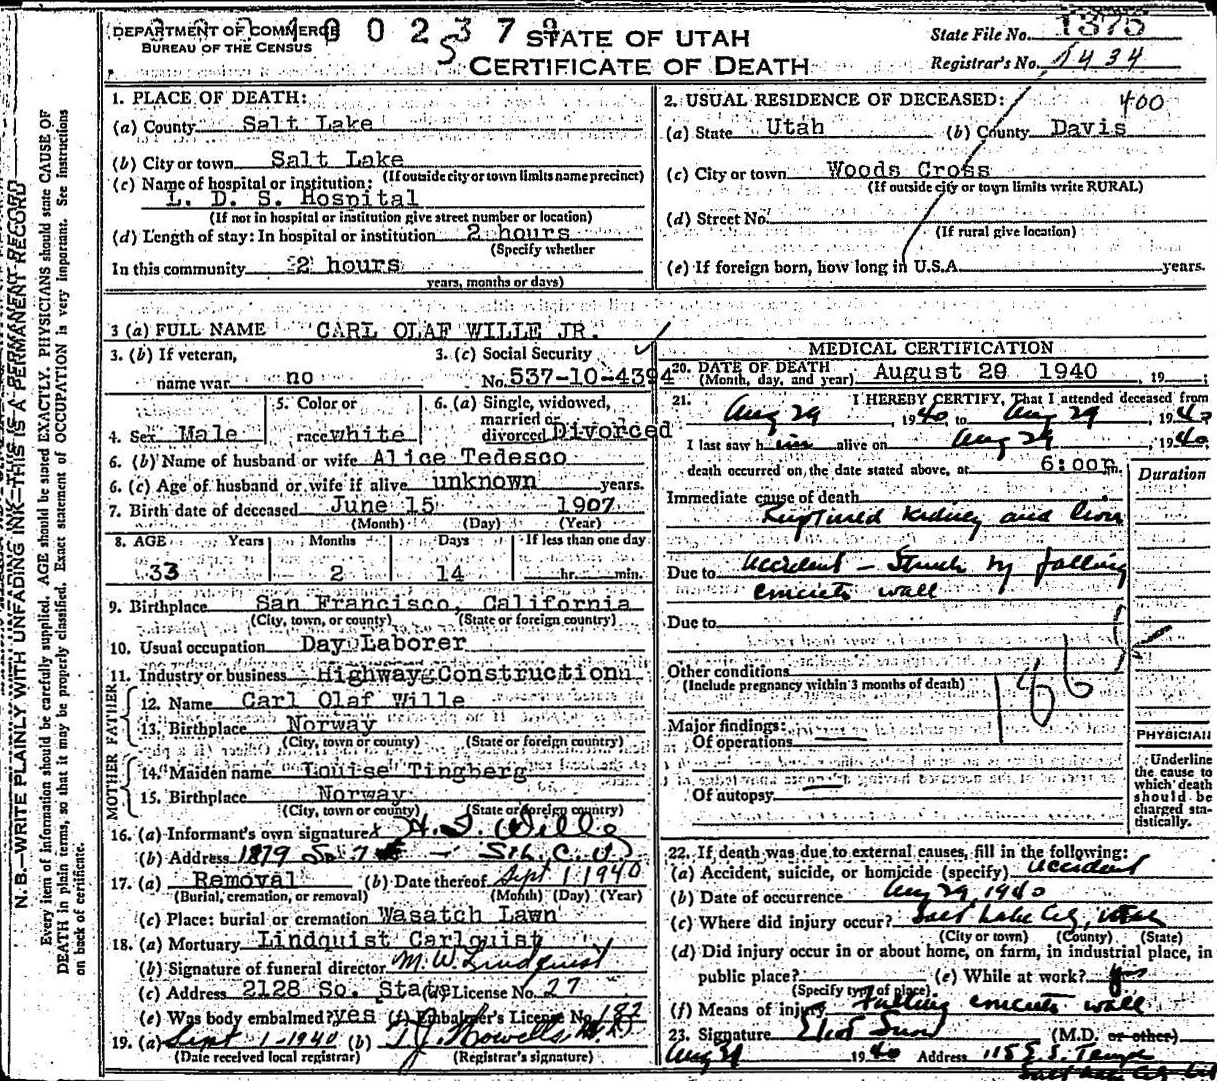 DEPARTMENT OF COMMERCE
BUREAU OF THE CENSUS
STATE OF UTAH
CERTIFICATE OF DEATH
State File No. 1375
Registrar's No. 1434
1. PLACE OF DEATH:
(a) County Salt Lake
(b) City or town Salt Lake
(If outside city or town limits name precinct)
(c) Name of hospital or institution:
L. D. S. Hospital
(If not in hospital or institution give street number or location)
(d) Length of stay: In hospital or institution 2 hours
(Specify whether
In this community 2 hours
years, months or days)
2. USUAL RESIDENCE OF DECEASED: 400
(a) State Utah (b) County Davis
(c) City or town Woods Cross
(If outside city or town limits write RURAL)
(d) Street No.
(If rural give location)
(e) If foreign born, how long in U.S.A. years.
3 (a) FULL NAME CARL OLAF WILLE JR.
3. (b) If veteran,
name war no
3. (c) Social Security
No. 537-10-4394
4. Sex Male
5. Color or
race white
6. (a) Single, widowed,
married or
divorced Divorced
6. (b) Name of husband or wife Alice Tedesco
6. (c) Age of husband or wife if alive unknown years.
7. Birth date of deceased June 15 1907
(Month) (Day) (Year)
8. AGE Years Months Days If less than one day
33 2 14 hr. min.
9. Birthplace San Francisco, California
(City, town, or county) (State or foreign country)
10. Usual occupation Day Laborer
11. Industry or business Highway Construction
FATHER
12. Name Carl Olaf Wille
13. Birthplace Norway
(City, town or county) (State or foreign country)
MOTHER
14. Maiden name Louise Tingberg
15. Birthplace Norway
(City, town or county) (State or foreign country)
16. (a) Informant's own signature
(b) Address 1879 So. 7
17. (a) Removal (b) Date thereof Sept 1 1940
(Burial, cremation, or removal) (Month) (Day) (Year)
(c) Place: burial or cremation Wasatch Lawn
18. (a) Mortuary Lindquist Carlquist
(b) Signature of funeral director M. W. Lindquist
(c) Address 2128 So. State (d) License No. 27
(e) Was body embalmed? yes (f) Embalmer's License No. 187
19. (a) Sept 1-1940 (b) T. J. Howells M.D.
(Date received local registrar) (Registrar's signature)
MEDICAL CERTIFICATION
20. DATE OF DEATH
(Month, day, and year) August 29 1940, 19 ;
21. I HEREBY CERTIFY, That I attended deceased from
Aug 29 1940, to Aug 29 1940
I last saw him alive on Aug 29 1940
death occurred on the date stated above, at 6:00P.m.
Duration
Immediate cause of death
Ruptured kidney and liver
Due to accident - Struck by falling
concrete wall
Due to
Other conditions
(Include pregnancy within 3 months of death)
166
Major findings:
Of operations
Of autopsy
PHYSICIAN
Underline
the cause to
which death
should be
charged sta-
tistically.
22. If death was due to external causes, fill in the following:
(a) Accident, suicide, or homicide (specify) accident
(b) Date of occurrence Aug 29, 1940
(c) Where did injury occur? Salt Lake City, Utah
(City or town) (County) (State)
(d) Did injury occur in or about home, on farm, in industrial place, in
public place? (e) While at work? yes
(Specify type of place)
(f) Means of injury Falling concrete wall
23. Signature (M.D. or other)
Aug 31 1940 Address 115 E. S. Temple
Salt Lake City Ut
N. B.—WRITE PLAINLY WITH UNFADING INK—THIS IS A PERMANENT RECORD
Every item of information should be carefully supplied. AGE should be stated EXACTLY. PHYSICIANS should state CAUSE OF
DEATH in plain terms, so that it may be properly classified. Exact statement of OCCUPATION is very important. See instructions
on back of certificate.